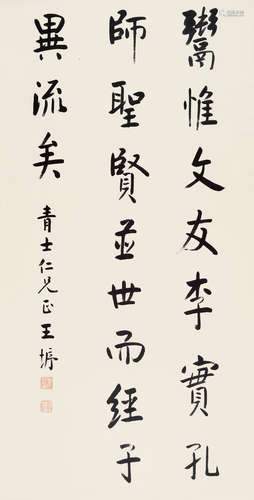 鬻惟文友李實孔
師聖賢並世而經子
異流矣
青士仁兄正王